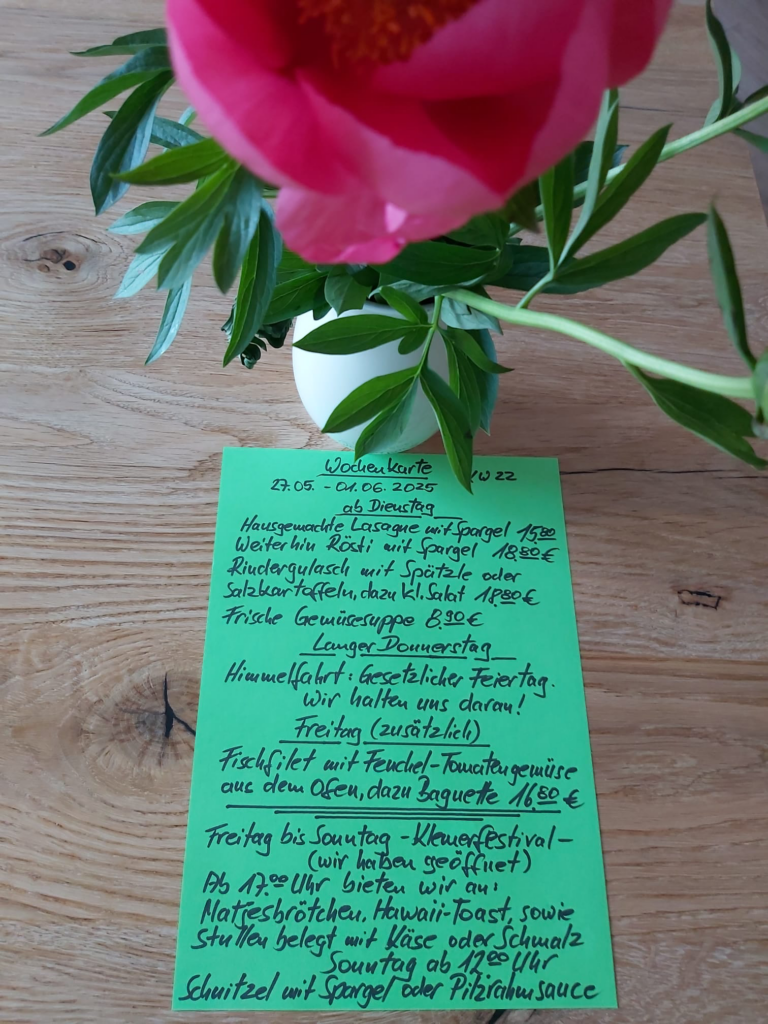 Wochenkarte KW 22
27.05. - 01.06. 2025
ab Dienstag
Hausgemachte Lasagne mit Spargel 15,80
Weiterhin Rösti mit Spargel 18,80 €
Rindergulasch mit Spätzle oder
Salzkartoffeln, dazu kl. Salat 18,80 €
Frische Gemüsesuppe 8,90 €
Langer Donnerstag
Himmelfahrt: Gesetzlicher Feiertag.
Wir halten uns daran!
Freitag (zusätzlich)
Fischfilet mit Fenchel-Tomatengemüse
aus dem Ofen, dazu Baguette 16,80 €
Freitag bis Sonntag - Klemerfestival -
(wir haben geöffnet)
Ab 17.00 Uhr bieten wir an:
Matjesbrötchen, Hawaii-Toast, sowie
Stullen belegt mit Käse oder Schmalz
Sonntag ab 12.00 Uhr
Schnitzel mit Spargel oder Pilzrahmsauce